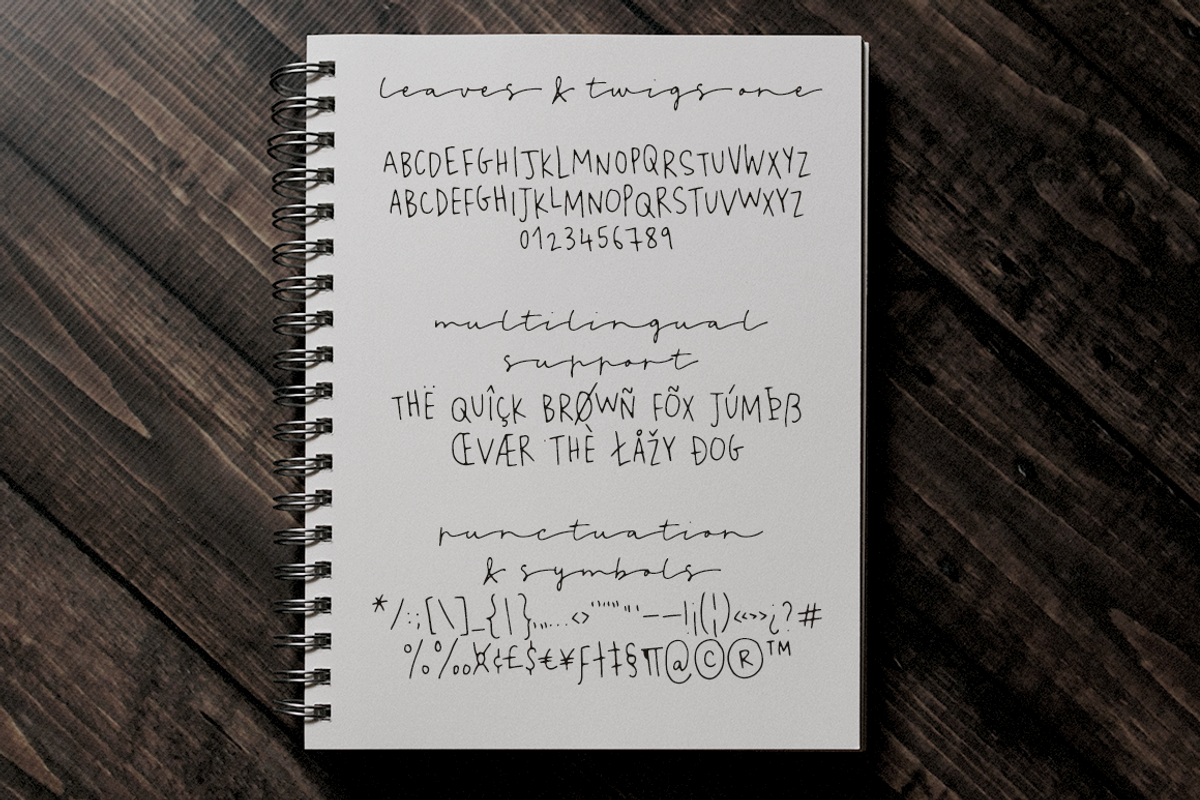 leaves & twigs one
ABCDEFGHIJKLMNOPQRSTUVWXYZ
ABCDEFGHIJKLMNOPQRSTUVWXYZ
0123456789
multilingual
support
THË QUÎÇK BRØWÑ FÕX JÚMÞß
ŒVÆR THÈ ŁÅŽY ÐOG
punctuation
& symbols
*/:;[\]_{|},„...‹›''""'"–—!¡(¦)«»¿?#
%‰¤¢£$€¥ƒ†‡§¶@©®™